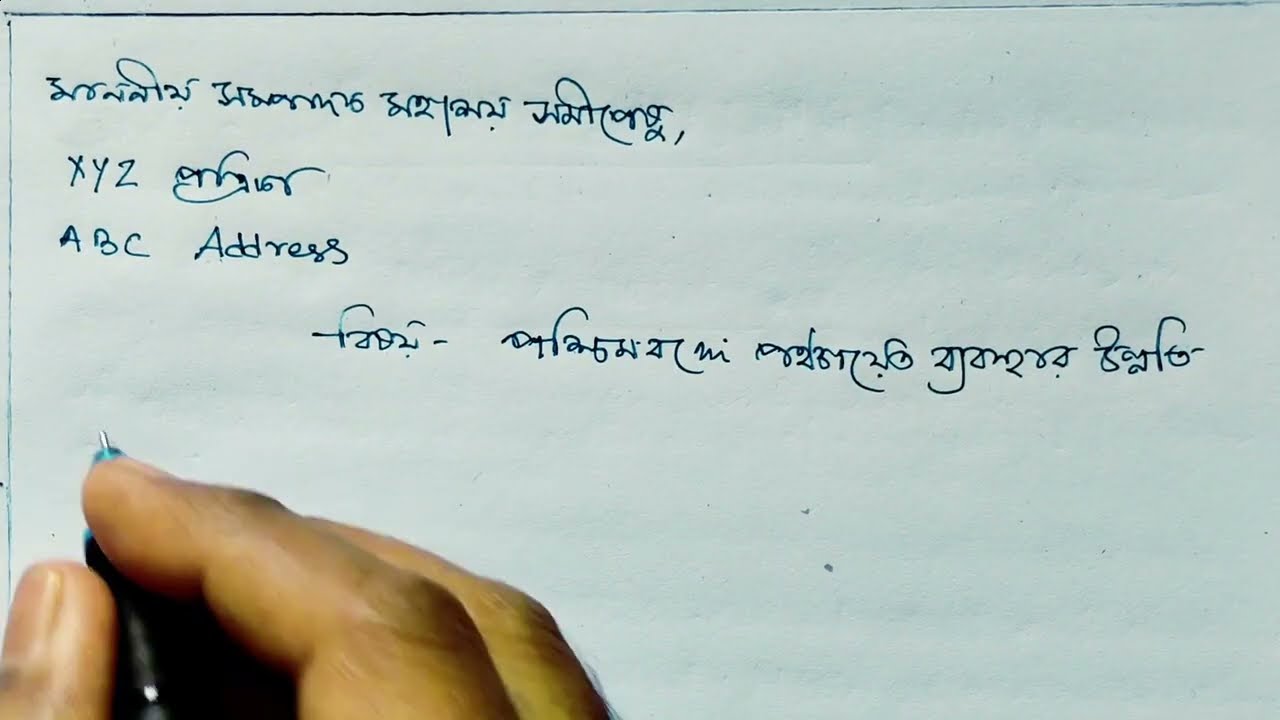 মাননীয় সম্পাদক মহাশয় সমীপেষু,
XYZ পত্রিকা
ABC Address
-বিষয় - পশ্চিমবঙ্গে পঞ্চায়েত ব্যবস্থার উন্নতি